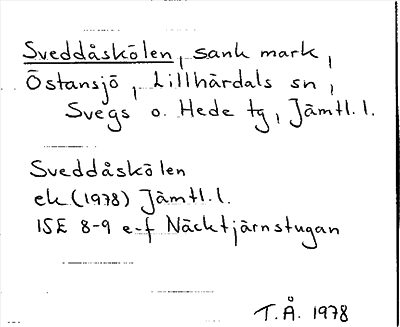 Sveddåskölen, sank mark,
Östansjö, Lillhärdals sn,
Svegs o. Hede tg, Jämtl. l.
Sveddåskölen
ek (1978) Jämtl. l.
15E 8-9 e-f Näcktjärnstugan
T.Å. 1978